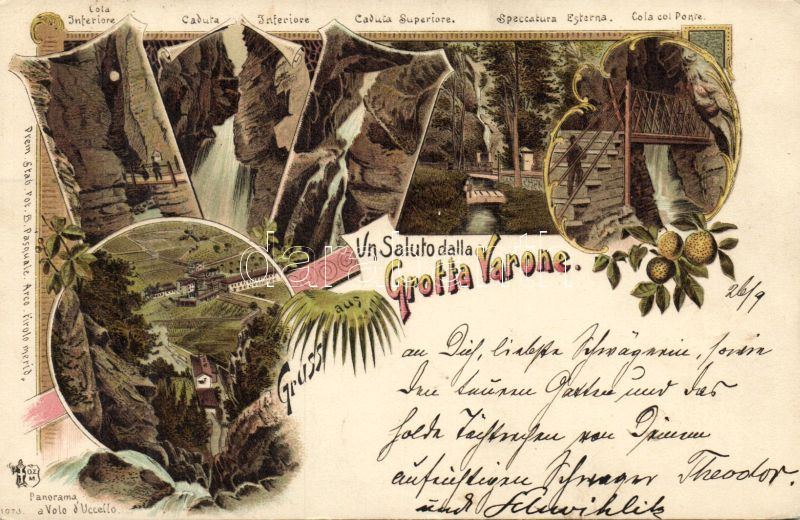 Cola
Inferiore
Caduta Inferiore
Caduta Superiore.
Speccatura Esterna.
Cola col Ponte.
Prem. Stab. Fot. B. Pasquale. Arco. Tirolo merid.
Un Saluto dalla
Grotta Varone.
Gruss aus
darabanth
26/9
an Dich, liebste Schwägerin, sowie
den teuren Gatten und das
holde Töchterchen von Deinem
aufrichtigen Schwager Theodor.
und
Panorama
a Volo d'Uccello.
1073.